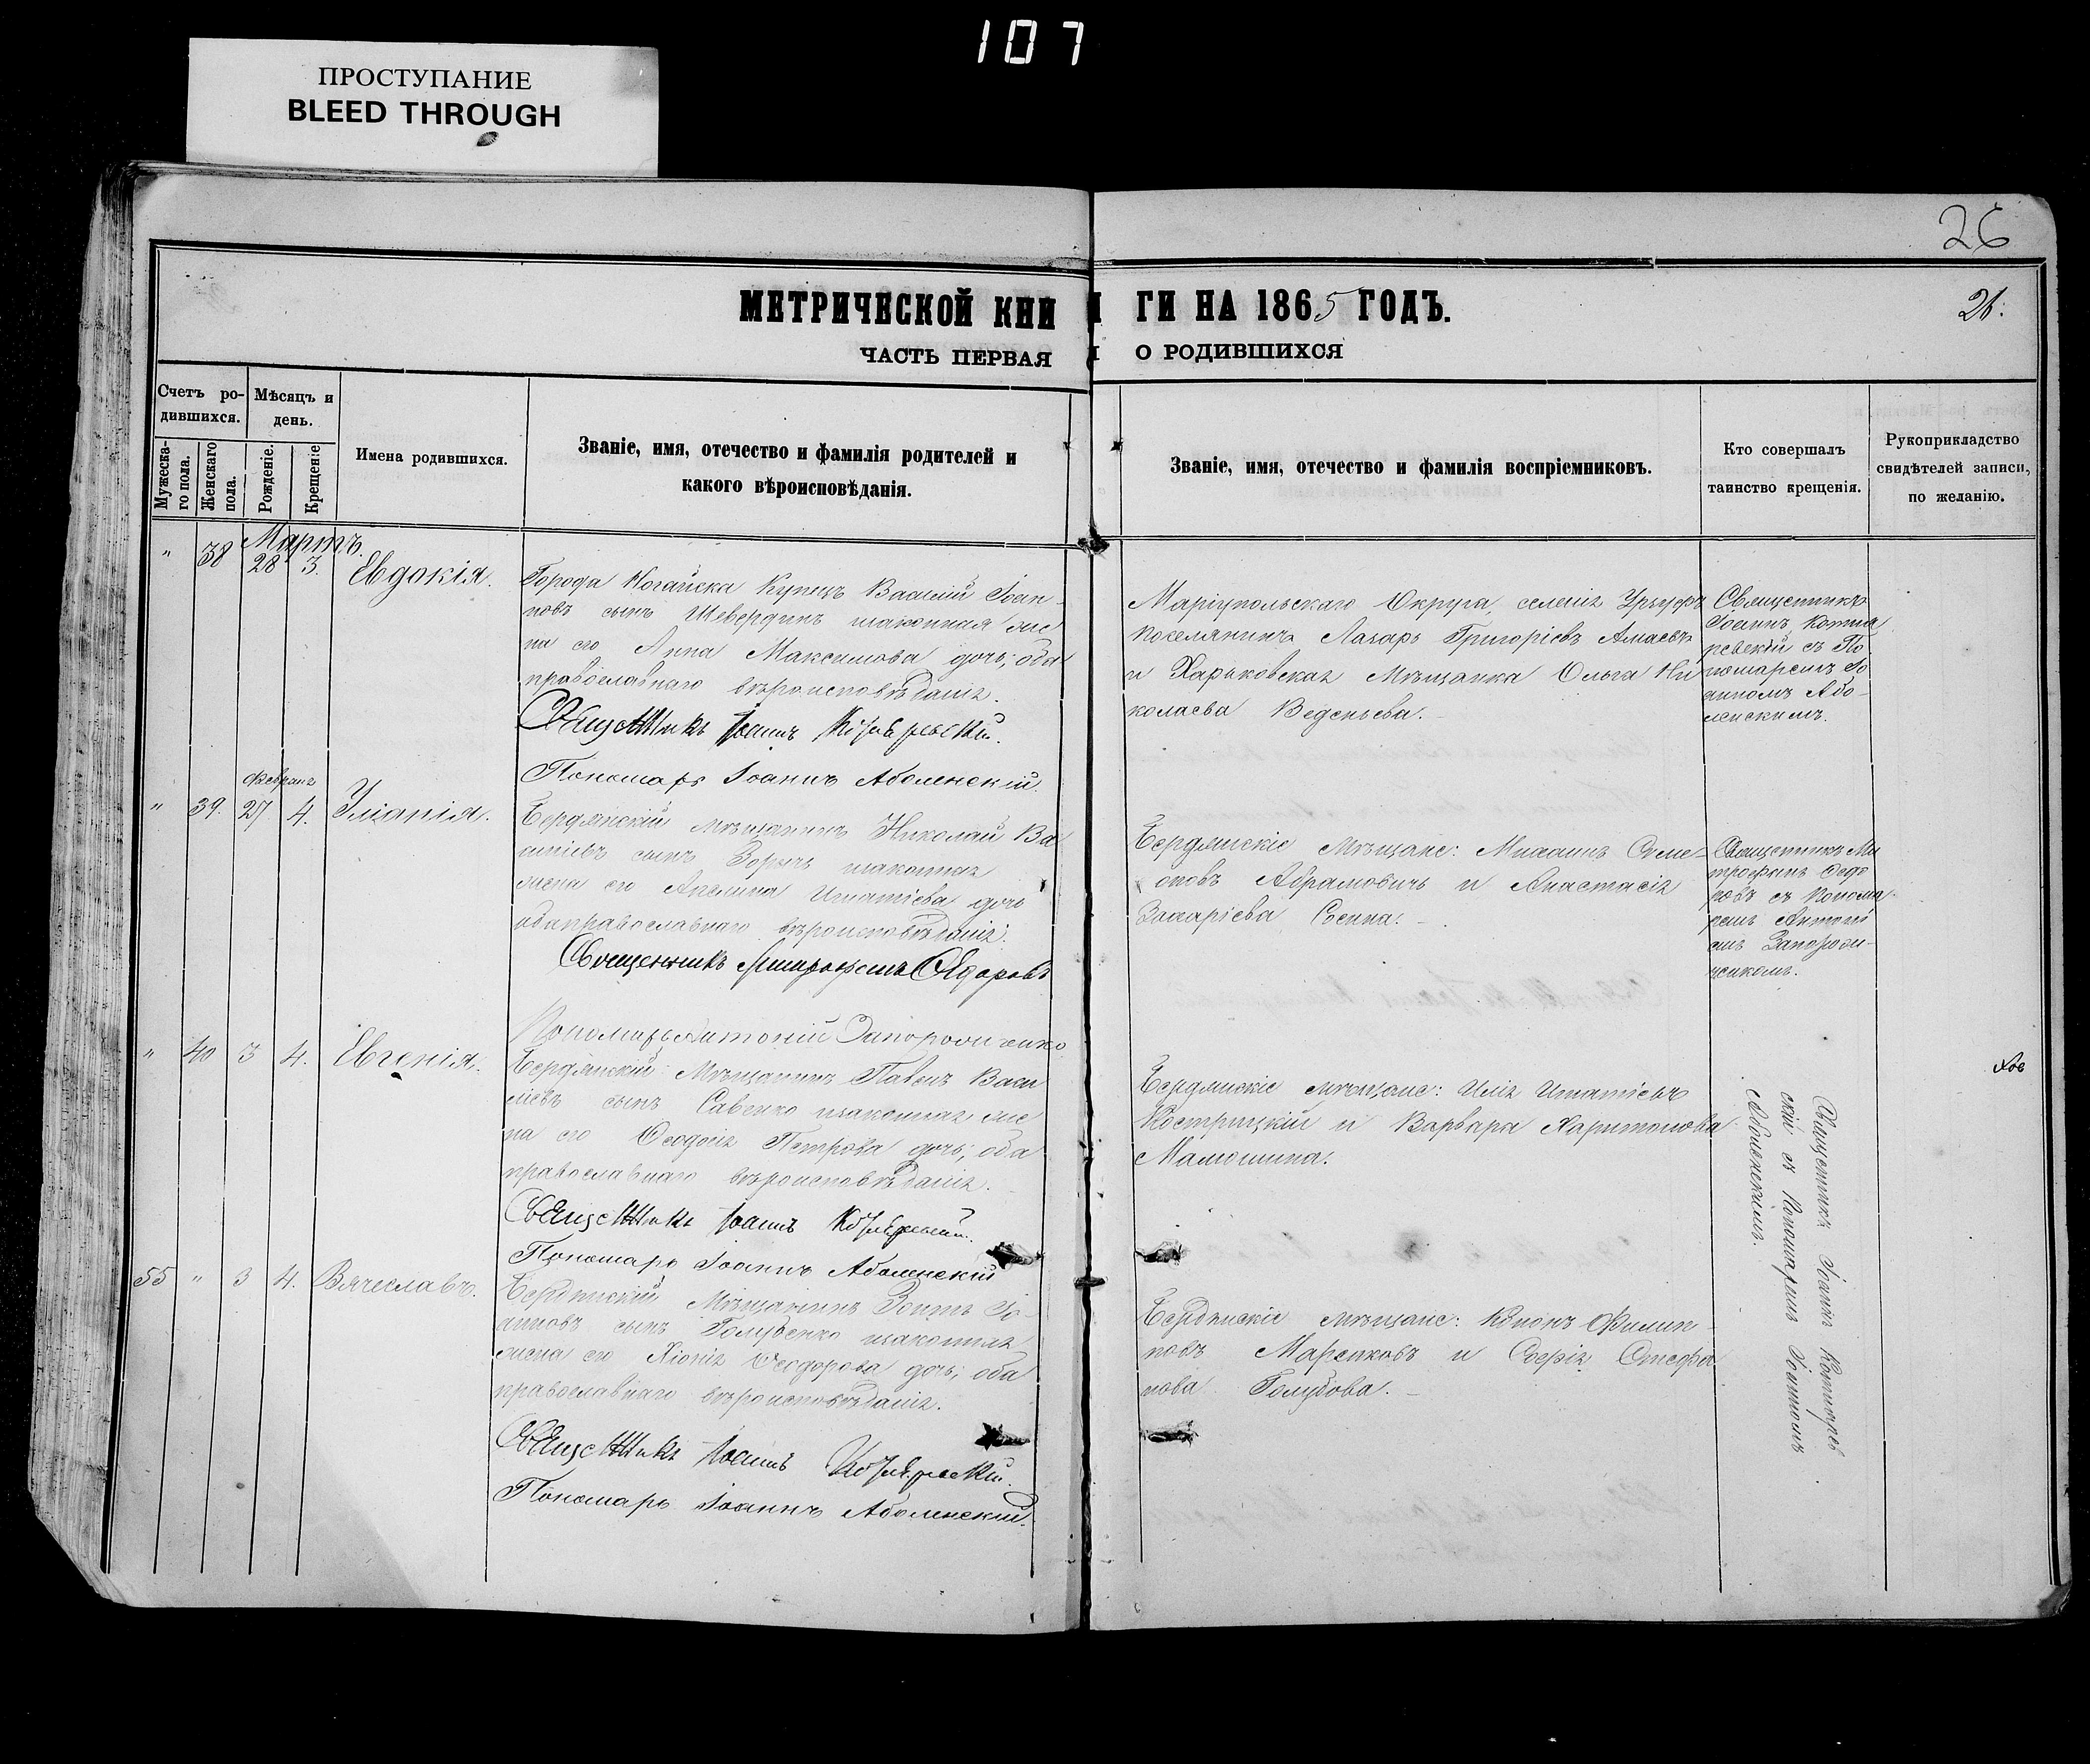 107
ПРОСТУПАНИЕ
BLEED THROUGH
26
МЕТРИЧЕСКОЙ КНИ ГИ НА 1865 ГОДЪ.
26.
ЧАСТЬ ПЕРВАЯ О РОДИВШИХСЯ
Счетъ ро-
дившихся.
Мѣсяцъ и
день.
Мужеска-
го пола.
Женскаго
пола.
Рожденіе.
Крещеніе
Имена родившихся.
Званіе, имя, отечество и фамилія родителей и
какого вѣроисповѣданія.
Званіе, имя, отечество и фамилія воспріемниковъ.
Кто совершалъ
таинство крещенія.
Рукоприкладство
свидѣтелей записи,
по желанію.
Мартъ.
" 38 28 3. Евдокія.
Города Ногайска Купецъ Василій Іоан-
новъ сынъ Шевердинъ законная же
на его Анна Максимова дочь; оба
православнаго вѣроисповѣданія.
Священникъ Іоаннъ
Пономарь Іоаннъ Аболенскій.
Маріупольскаго Округа, селенія Урзуфъ
поселянинъ Лазарь Григоріевъ
и Харьковская Мѣщанка Ольга Ни
колаева Веденьева.
Священникъ
Іоаннъ Котля
ревскій съ По
номаремъ Іо
анномъ Або-
ленскимъ.
Февраля
" 39. 27 4. Уліанія.
Бердянскій мѣщанинъ Николай Ва
силіевъ сынъ законная
жена его Ігнатіева дочь
оба православнаго вѣроисповѣданія.
Священникъ Митрофанъ Ѳедоровъ
Пономарь Антоній Запорожченко
Бердянскіе Мѣщане: Михаилъ Симе-
оновъ Абрамовичъ и Анастасія
Захаріева
Священникъ Ми
трофанъ Ѳедо
ровъ съ Понома-
ремъ Антоні
емъ Запорож-
ченкомъ.
" 40 3 4. Евгенія.
Бердянскій Мѣщанинъ Павелъ Васи
ліевъ сынъ Савенко законная же
на его Ѳеодосія Петрова дочь; оба
православнаго вѣроисповѣданія.
Священникъ Іоаннъ
Пономарь Іоаннъ Аболенскій
Бердянскіе мѣщане: Илія Игнатіевъ
Кострицкій и Варвара Харитонова
Малюшина.
Священникъ Іоаннъ Котлярев
скій съ Пономаремъ Іоанномъ
Аболенскимъ.
55 " 3 4. Вячеславъ.
Бердянскій Мѣщанинъ Іо-
анновъ сынъ Голубенко законная
жена его Хіонія Ѳеодорова дочь; оба
православнаго вѣроисповѣданія.
Священникъ Іоаннъ
Пономарь Іоаннъ Аболенскій.
Бердянскіе мѣщане: Филип-
повъ и Софія Стефа
нова Голубова.